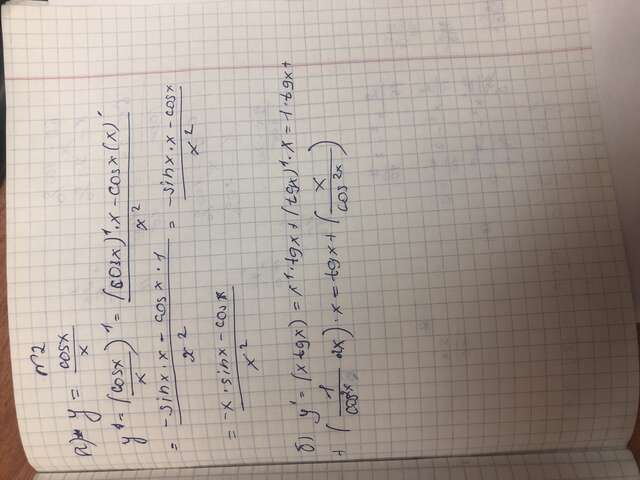 n2
а) y = cosx / x
y' = (cosx / x)' = ((cosx)'·x - cosx(x)') / x²
= (-sinx·x - cosx·1) / x² = (-sinx·x - cosx) / x²
= (-x·sinx - cosx) / x²
б) y' = (x tgx) = x'·tgx + (tgx)'·x = 1·tgx +
+ (1 / cos²x)·x = tgx + (x / cos²x)